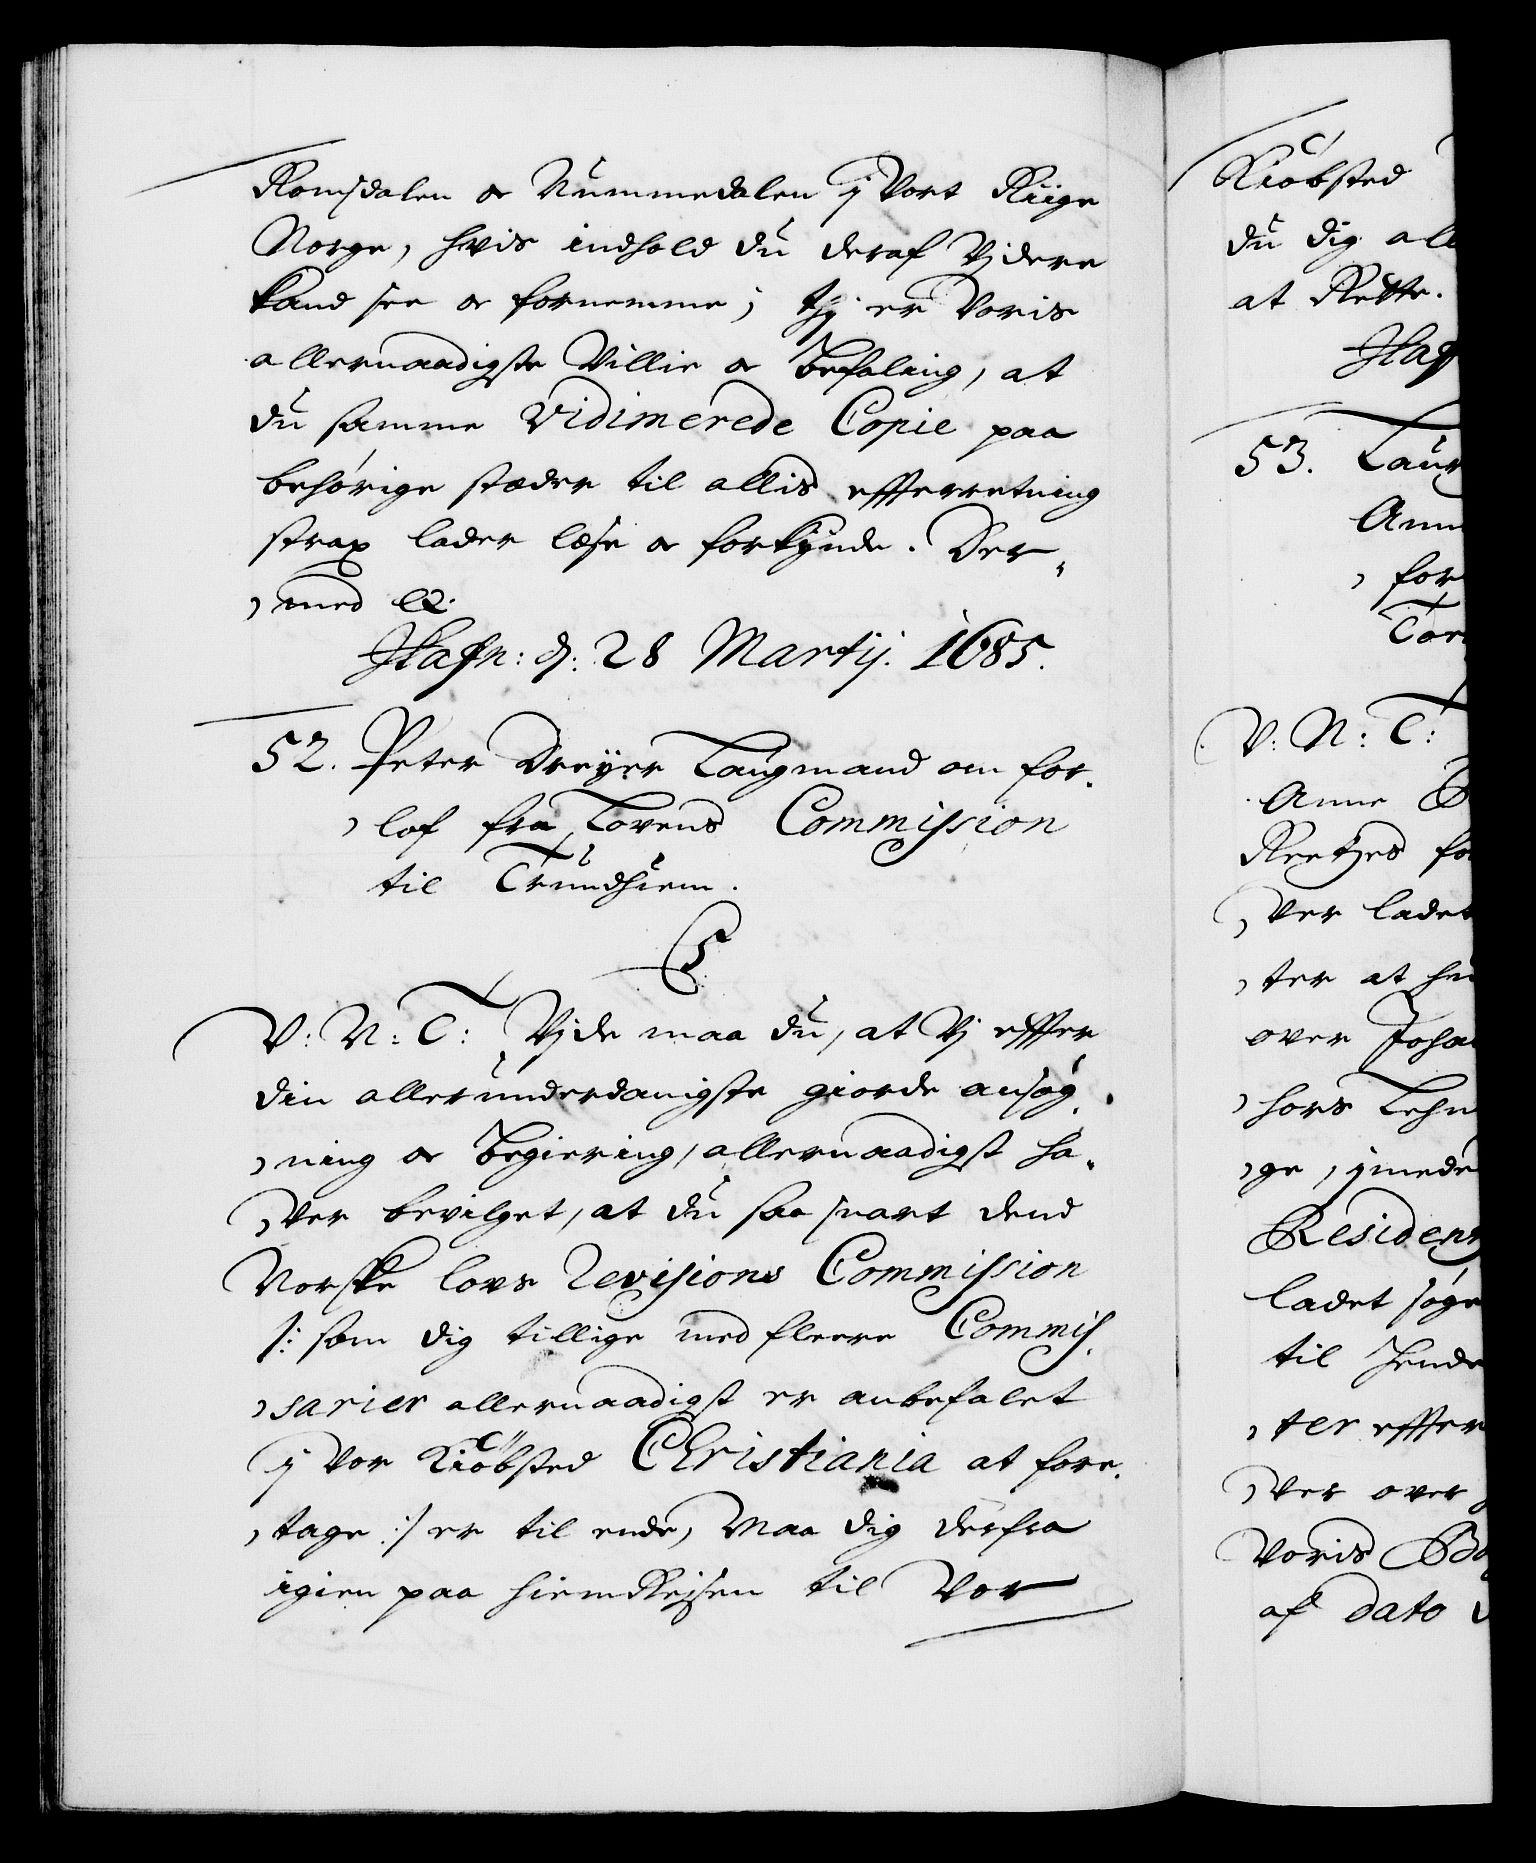 Romsdalen og Nummedalen i Vort Riige
Norge, hvis indhold du deraf Vjdere
kand see og fornemme; thj er Voris
allernaadigste Villie og Befaling, at
du samme Vidimerede Copie paa
behörige stæder til alles effterretning
strax lader læse og forkÿnde. Der,,
,med etc.
Hafn: d: 28 Martij. 1685.
52. Peter Dreÿer Laugmand om for,
,lof fra Lovens Commission
til Trundhiem.
C5
V: N: T: Vjde maa du, at Vj effter
din allerunderdanigste giorde ansøg,
,ning og Begiering, allernaadigst ha,,
,ver bevilget, at du saa snart dend
Norske lovs Revisions Commission
/: som dig tillige med fleere Commis,
,sarier allernaadigst er anbefalet
i Vor Kiöbsted Christiania at fore,
,tage :/ er til ende, Maa dig derfra
igien paa hiemReisen til Vor
Kiöbsted
du dig all
at Rette.
Haf
53. Laur
Ann
, for
V: N: T:
Anne
Reetzes fo
,ver ladet
,ter at
over Joha
,hors Lehn
,ge, imede
Residen
ladet søge
til hende
,ter effter
,ver over
Voris
af dato